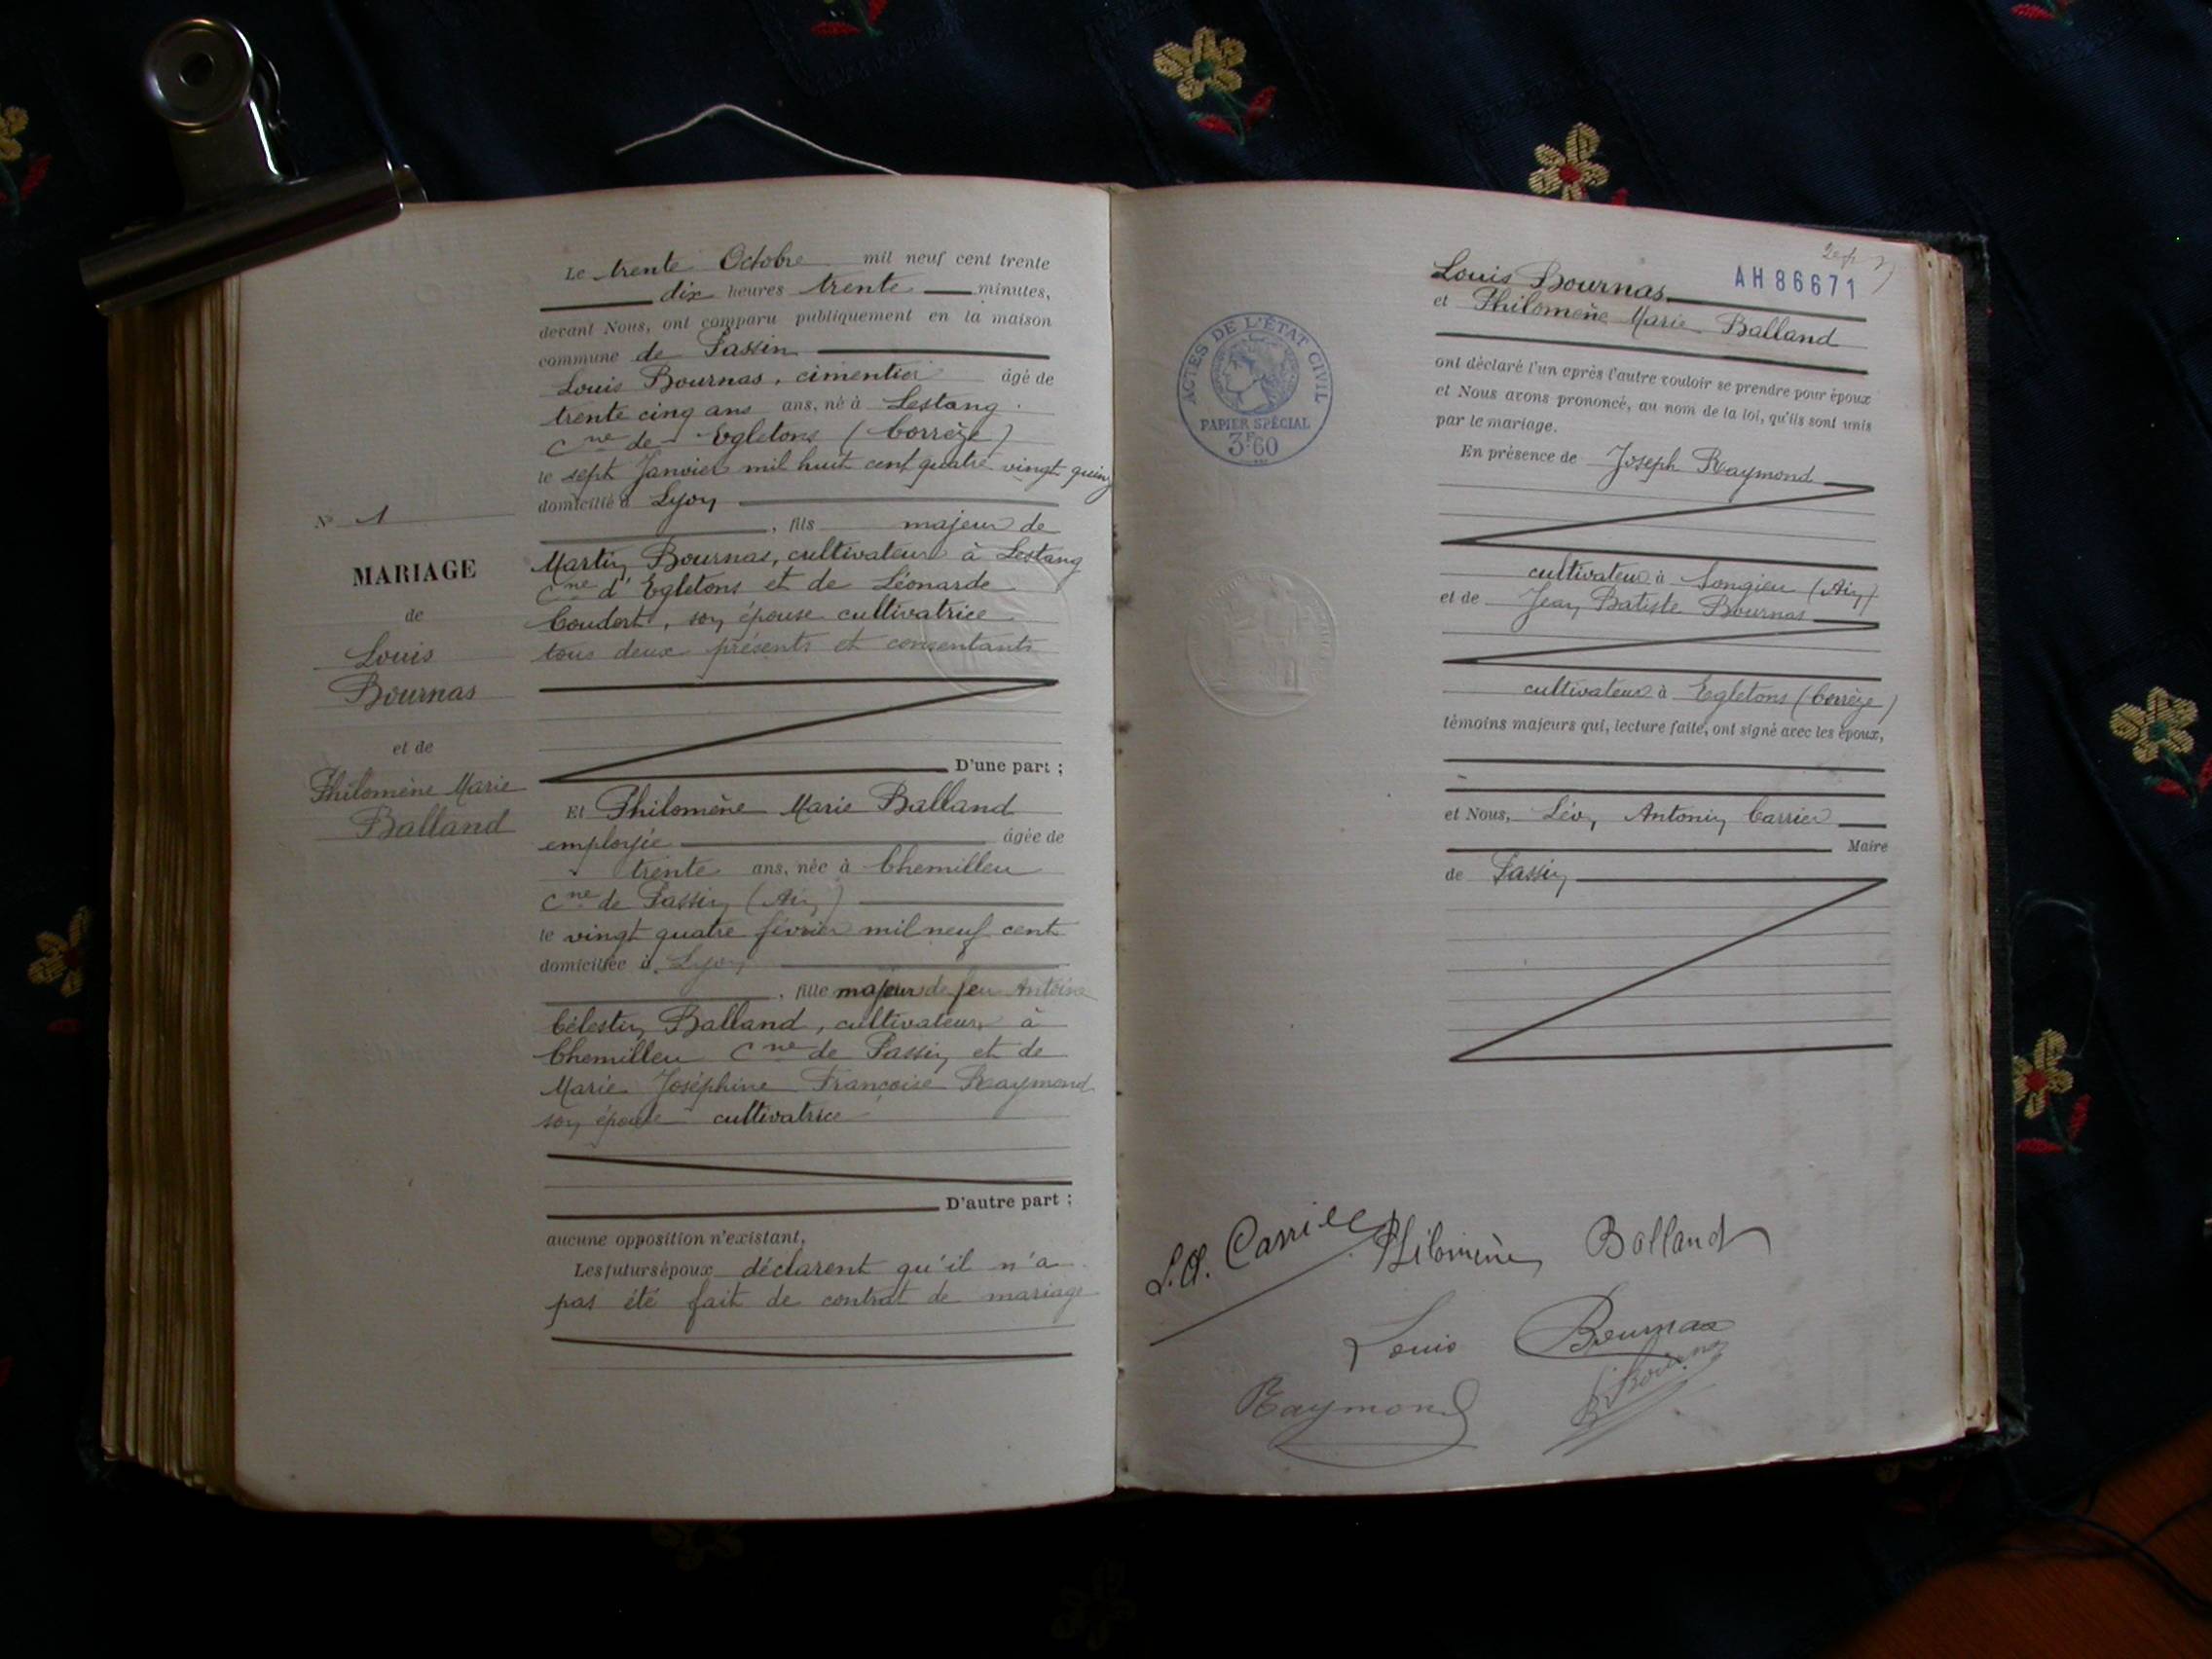 Le trente Octobre mil neuf cent trente
dix heures trente minutes,
devant Nous, ont comparu publiquement en la maison
commune de Passin
Louis Bournas, cimentier âgé de
trente cinq ans ans, né à Lestang
Cne de Egletons (Corrèze)
le sept Janvier mil huit cent quatre vingt quinz
domicilié à Lyon
, fils majeur de
Martin Bournas, cultivateur à Lestang
Cne d'Egletons et de Léonarde
Coudert, son épouse cultivatrice
tous deux présents et consentants
D'une part ;
Et Philomène Marie Balland
employée âgée de
trente ans, née à Chemilleu
Cne de Passin (Ain)
le vingt quatre février mil neuf cent
domiciliée à Lyon
, fille majeur de feu Antoine
Célestin Balland, cultivateur à
Chemilleu Cne de Passin et de
Marie Joséphine Françoise Raymond
son épouse cultivatrice
D'autre part ;
aucune opposition n'existant,
Les futurs époux déclarent qu'il n'a
pas été fait de contrat de mariage
No 1
MARIAGE
de
Louis
Bournas
et de
Philomène Marie
Balland
AH 86671
Louis Bournas
et Philomène Marie Balland
ont déclaré l'un après l'autre vouloir se prendre pour époux
et Nous avons prononcé, au nom de la loi, qu'ils sont unis
par le mariage.
En présence de Joseph Raymond
cultivateur à Songieu (Ain)
et de Jean Batiste Bournas
cultivateur à Egletons (Corrèze)
témoins majeurs qui, lecture faite, ont signé avec les époux,
et Nous, Léon Antonin Carrier
Maire
de Passin
ACTES DE L'ÉTAT CIVIL
PAPIER SPÉCIAL
3F60
L.A. Carrier
Philomène Balland
Louis Bournas
Raymond
Bournas